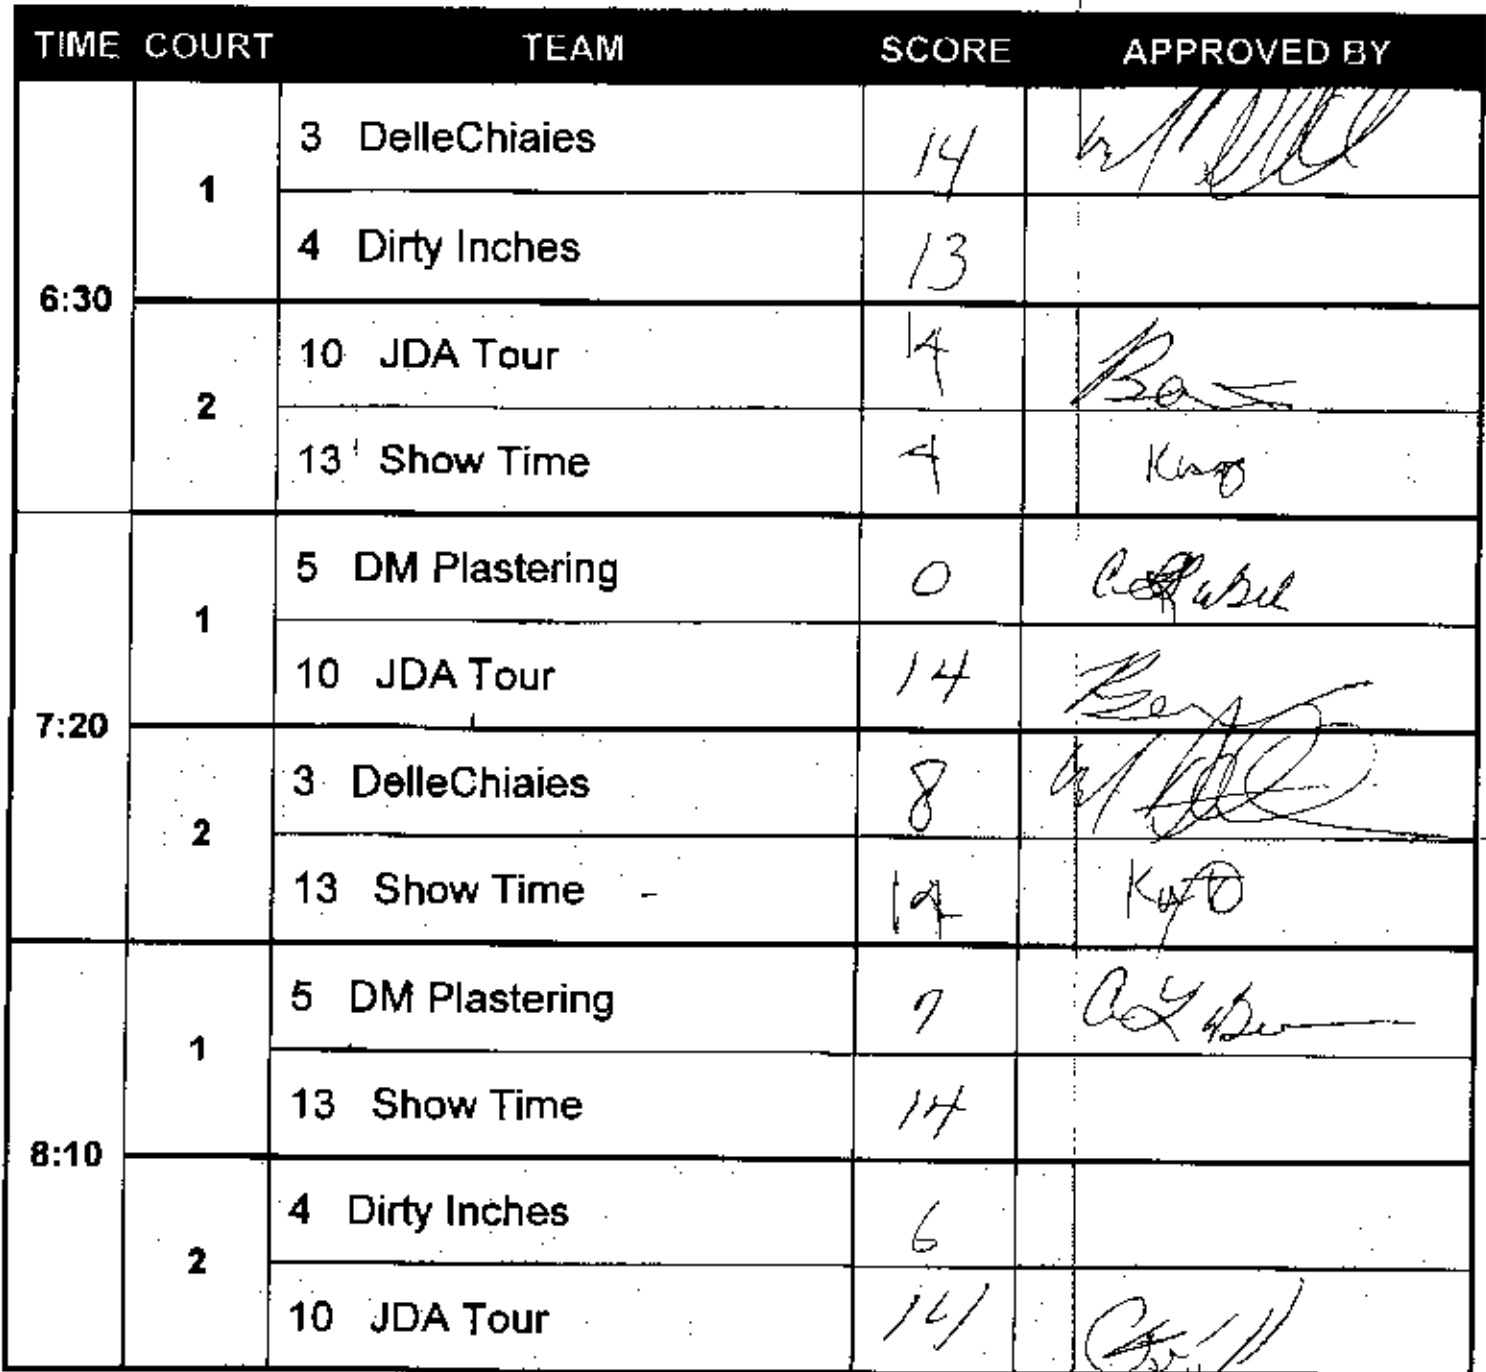 TIME COURT TEAM SCORE APPROVED BY
6:30
1
3 DelleChiaies 14
4 Dirty Inches 13
2
10 JDA Tour 14
13 Show Time 4
7:20
1
5 DM Plastering 0
10 JDA Tour 14
2
3 DelleChiaies 8
13 Show Time
8:10
1
5 DM Plastering 7
13 Show Time 14
2
4 Dirty Inches 6
10 JDA Tour 14